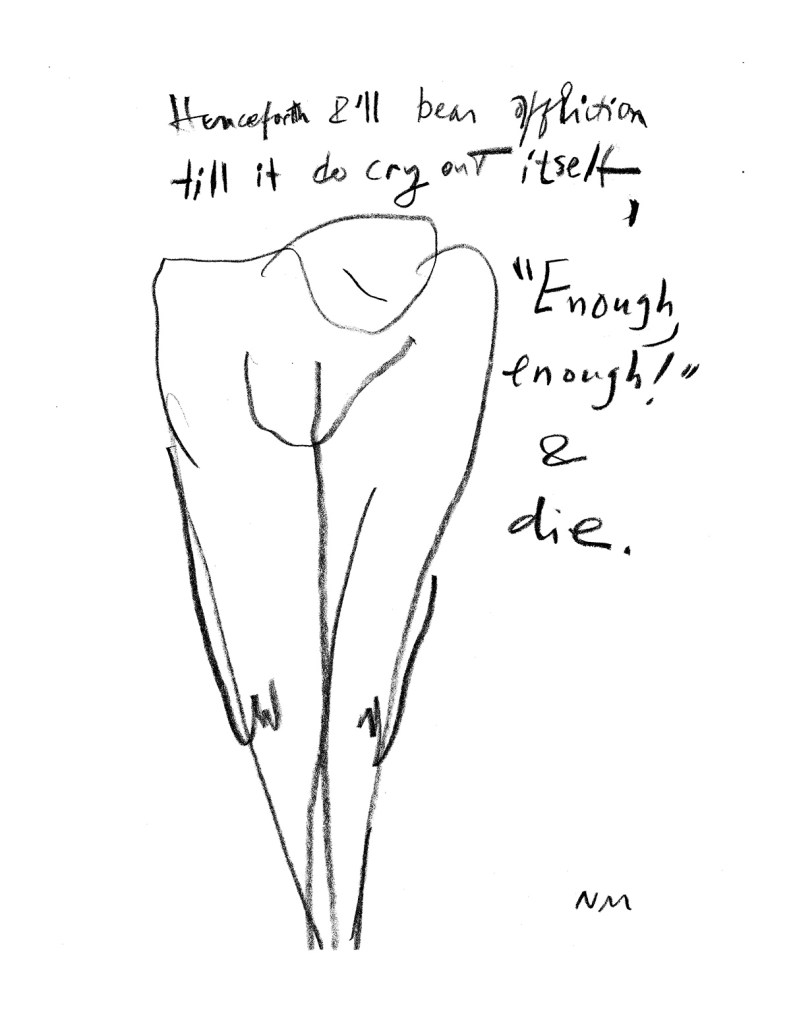 Henceforth I'll bear affliction
till it do cry out itself,
"Enough,
enough!"
&
die.
NM